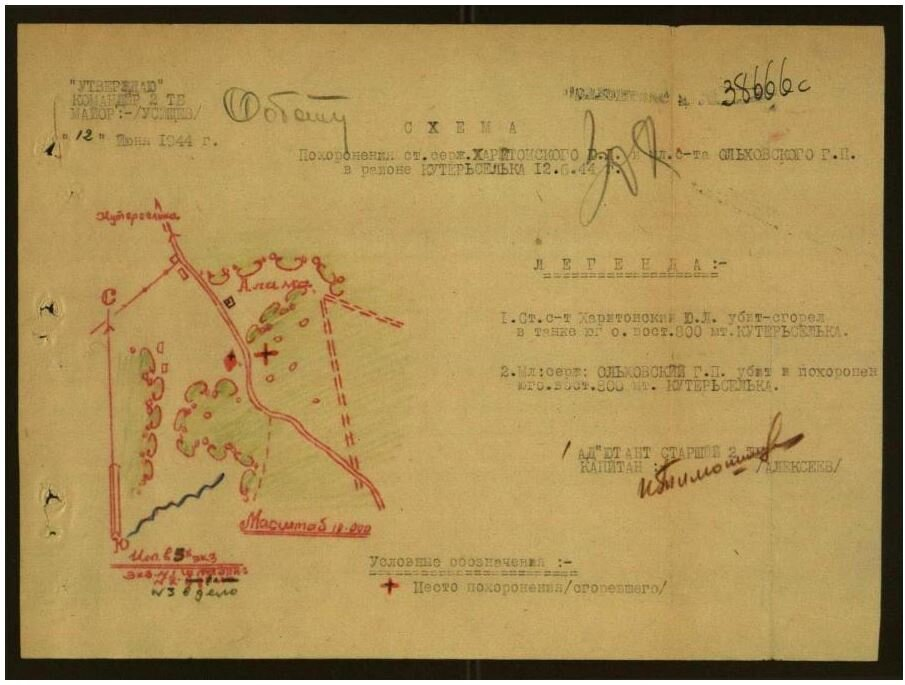 "УТВЕРЖДАЮ"
КОМАНДИР 2 ТБ
МАЙОР:-/УСИЩЕВ/
"12" Июня 1944 г.
38666с
С Х Е М А
Похоронения ст.серж.ХАРИТОНСКОГО и мл.с-та ОЛЬХОВСКОГО Г.П.
в районе КУТЕРЬСЕЛЬКА 12.6.44 г.
Кутерселька
С
Алама
Ю
Масштаб 10.000
Исп. в 3х экз
№3 в дело
Л Е Г Е Н Д А :-
1.Ст.с-т Харитонский Ю.Л. убит-сгорел
в танке юг о. вост.800 мт.КУТЕРЬСЕЛЬКА.
2.Мл:серж: ОЛЬХОВСКИЙ Г.П. убит и похоронен
юго.вост.800 мт. КУТЕРЬСЕЛЬКА.
АД"ЮТАНТ СТАРШИЙ 2
КАПИТАН : /АЛЕКСЕЕВ/
Условные обозначения :-
Место похоронения/сгоревшего/